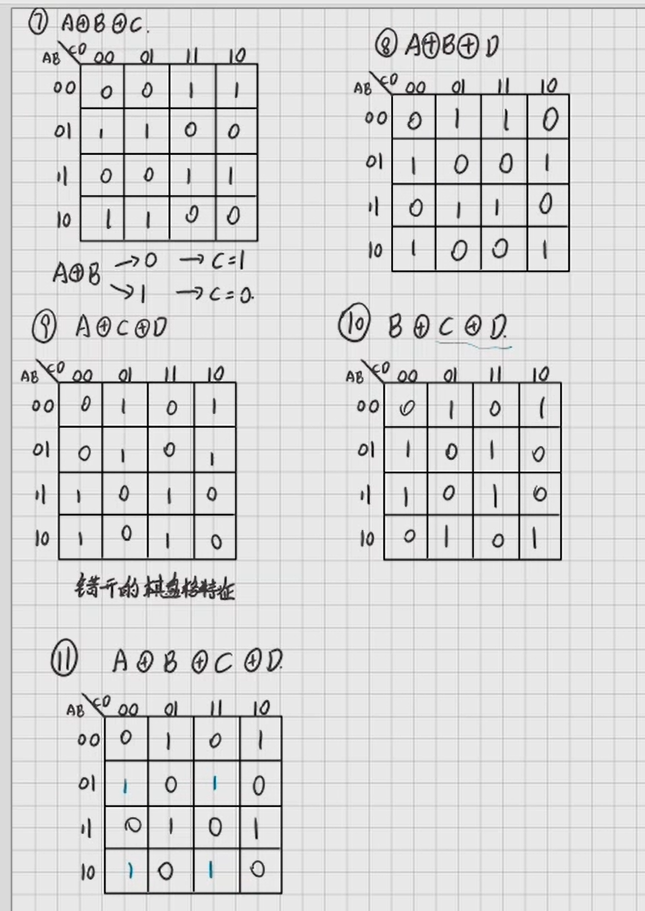 ⑦ A⊕B⊕C.
AB CD 00 01 11 10
00 0 0 1 1
01 1 1 0 0
11 0 0 1 1
10 1 1 0 0
A⊕B → 0 → C=1
↘ 1 → C=0.
⑧ A⊕B⊕D
AB CD 00 01 11 10
00 0 1 1 0
01 1 0 0 1
11 0 1 1 0
10 1 0 0 1
⑨ A⊕C⊕D
AB CD 00 01 11 10
00 0 1 0 1
01 0 1 0 1
11 1 0 1 0
10 1 0 1 0
错开的棋盘格特征
⑩ B⊕C⊕D.
AB CD 00 01 11 10
00 0 1 0 1
01 1 0 1 0
11 1 0 1 0
10 0 1 0 1
⑪ A⊕B⊕C⊕D.
AB CD 00 01 11 10
00 0 1 0 1
01 1 0 1 0
11 0 1 0 1
10 1 0 1 0